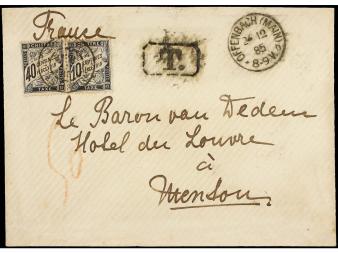 France
OFFENBACH (MAIN)
12
85
8-9
T.
CHIFFRE
40
TAXE
CHIFFRE
10
TAXE
Le Baron van Dedem
Hotel du Louvre
à
Menton.